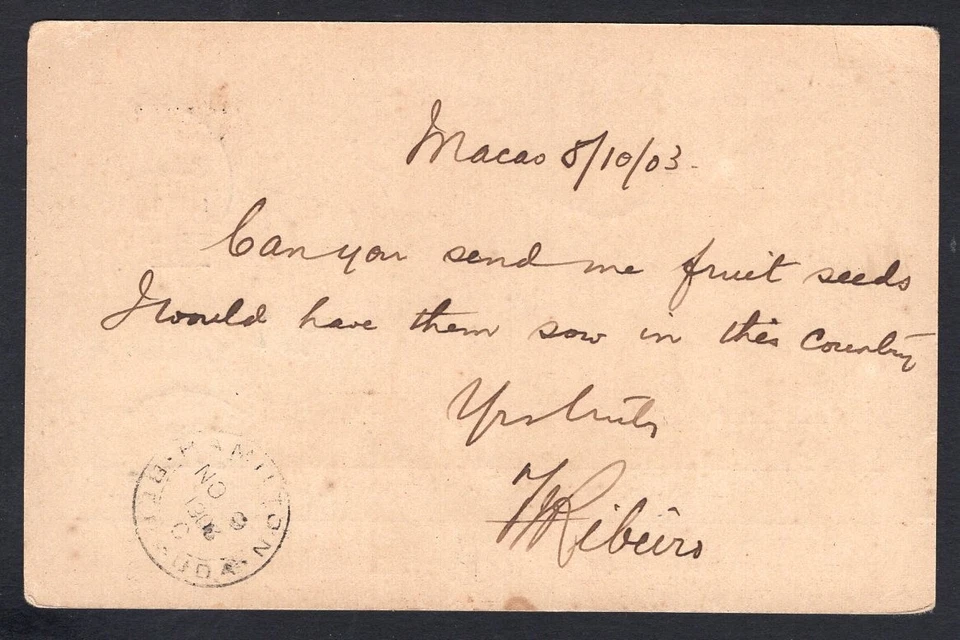 Macao 8/10/03.
Can you send me fruit seeds
I would have them sow in this country
Yrs truly
Ribeiro
HAMILTON
BERMUDA
NO